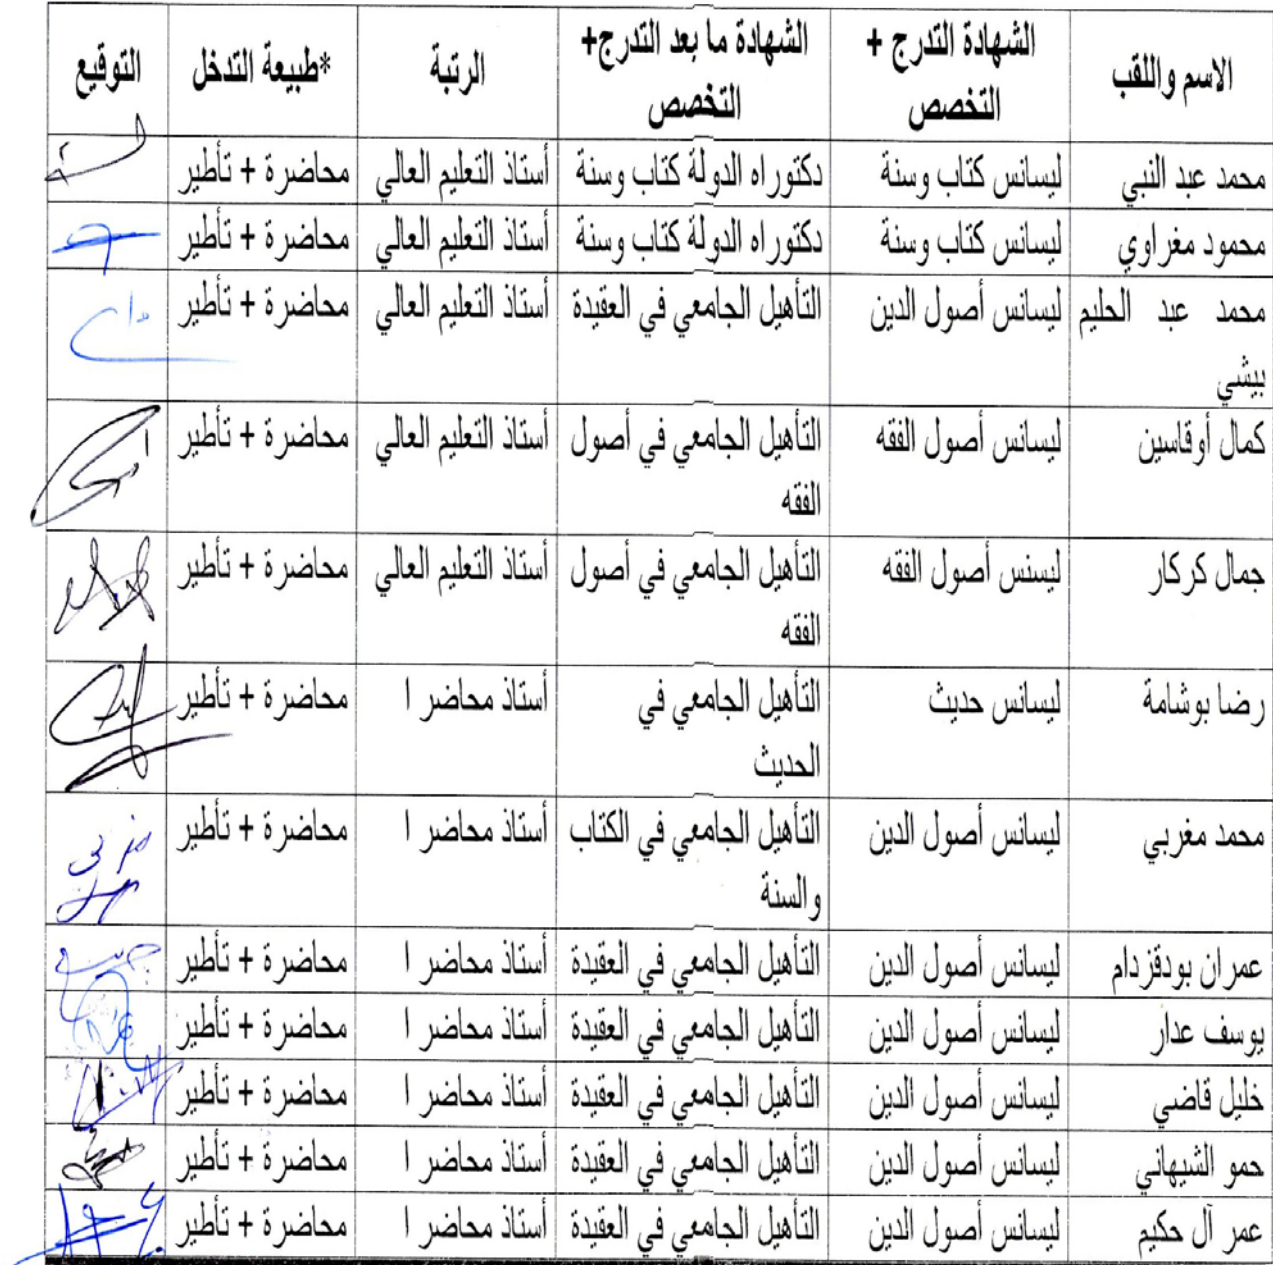 الاسم واللقب الشهادة التدرج + التخصص الشهادة ما بعد التدرج+ التخصص الرتبة *طبيعة التدخل التوقيع
محمد عبد النبي ليسانس كتاب وسنة دكتوراه الدولة كتاب وسنة أستاذ التعليم العالي محاضرة + تأطير
محمود مغراوي ليسانس كتاب وسنة دكتوراه الدولة كتاب وسنة أستاذ التعليم العالي محاضرة + تأطير
محمد عبد الحليم بيشي ليسانس أصول الدين التأهيل الجامعي في العقيدة أستاذ التعليم العالي محاضرة + تأطير
كمال أوقاسين ليسانس أصول الفقه التأهيل الجامعي في أصول الفقه أستاذ التعليم العالي محاضرة + تأطير
جمال كركار ليسنس أصول الفقه التأهيل الجامعي في أصول الفقه أستاذ التعليم العالي محاضرة + تأطير
رضا بوشامة ليسانس حديث التأهيل الجامعي في الحديث أستاذ محاضر ا محاضرة + تأطير
محمد مغربي ليسانس أصول الدين التأهيل الجامعي في الكتاب والسنة أستاذ محاضر ا محاضرة + تأطير
عمران بودقزدام ليسانس أصول الدين التأهيل الجامعي في العقيدة أستاذ محاضر ا محاضرة + تأطير
يوسف عدار ليسانس أصول الدين التأهيل الجامعي في العقيدة أستاذ محاضر ا محاضرة + تأطير
خليل قاضي ليسانس أصول الدين التأهيل الجامعي في العقيدة أستاذ محاضر ا محاضرة + تأطير
حمو الشيهاني ليسانس أصول الدين التأهيل الجامعي في العقيدة أستاذ محاضر ا محاضرة + تأطير
عمر آل حكيم ليسانس أصول الدين التأهيل الجامعي في العقيدة أستاذ محاضر ا محاضرة + تأطير